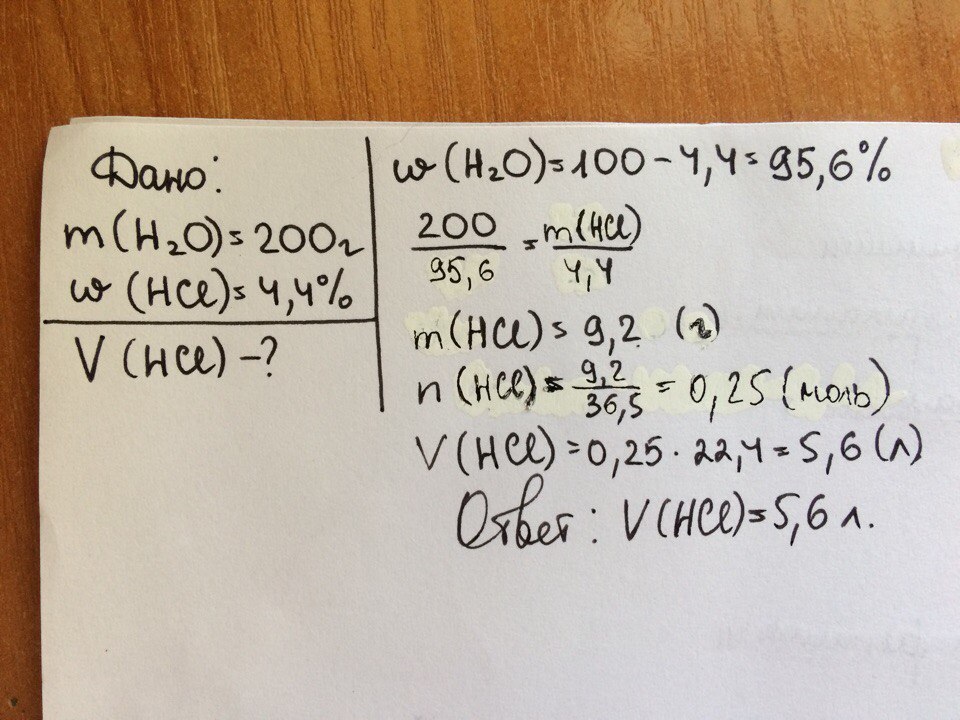 Дано:
m(H₂O)=200г
w(HCl)=4,4%
V(HCl)-?
w(H₂O)=100-4,4=95,6%
200/95,6=m(HCl)/4,4
m(HCl)=9,2(г)
n(HCl)=9,2/36,5=0,25(моль)
V(HCl)=0,25·22,4=5,6(л)
Ответ: V(HCl)=5,6л.